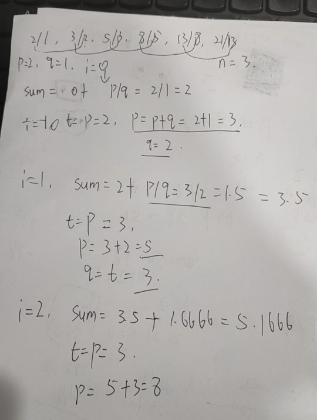 2/1, 3/2, 5/3, 8/5, 13/8, 21/13
p=2, q=1, i=0
n=3.
sum= 0+ p/q = 2/1 = 2
t=p=2, p=p+q = 2+1 = 3.
q=2.
i=1, sum= 2+ p/q = 3/2 = 1.5 = 3.5
t=p=3.
p=3+2=5
q=t=3.
i=2, sum= 3.5 + 1.6666 = 5.1666
t=p=3.
p= 5+3=8